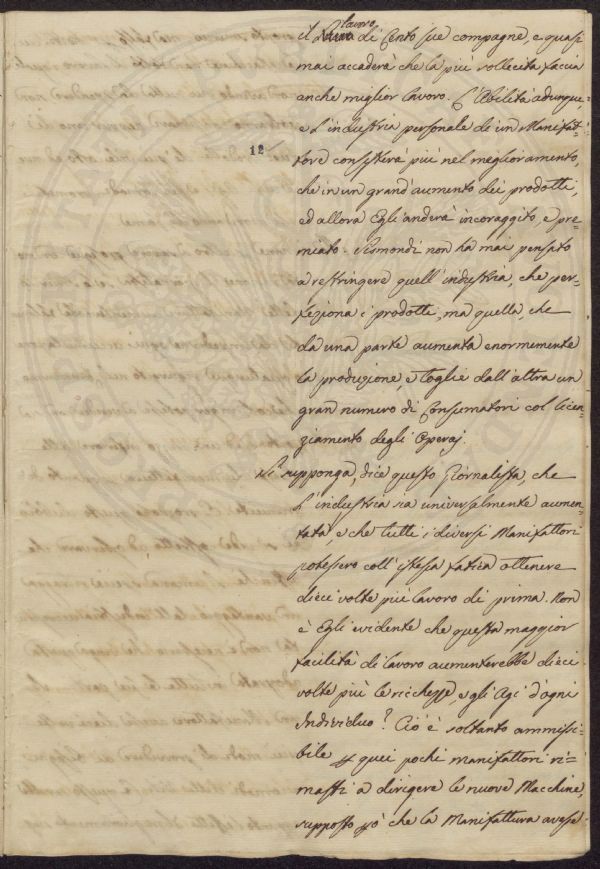 lavoro
il di Cento sue compagne, e quasi
mai accaderà che la più sollecita faccia
anche miglior lavoro. L'Abilità adunque
e l'industria personale di un Manifat=
12
tore consisterà più nel miglioramento,
che in un grand'aumento dei prodotti,
ed allora Egli anderà incoraggito, e pre=
miato. Sismondi non ha mai pensato
a restringere quell'industria, che per=
feziona i prodotti, ma quella, che
da una parte aumenta enormemente
la produzione, e toglie dall'altra un
gran numero di Consumatori col licen=
ziamento degli Operaj.
Si supponga, dice questo Giornalista, che
l'industria sia universalmente aumen=
tata, e che tutti i diversi Manifattori
potessero coll'istessa fatica ottenere
dieci volte più lavoro di prima. Non
è Egli evidente che questa maggior
facilità di lavoro aumenterebbe dieci
volte più le ricchezze, e gli Agi d'ogni
Individuo? Ciò è soltanto ammissi=
bile quei pochi manifattori ri=
masti a dirigere le nuove Macchine,
supposto che la Manifattura avesse